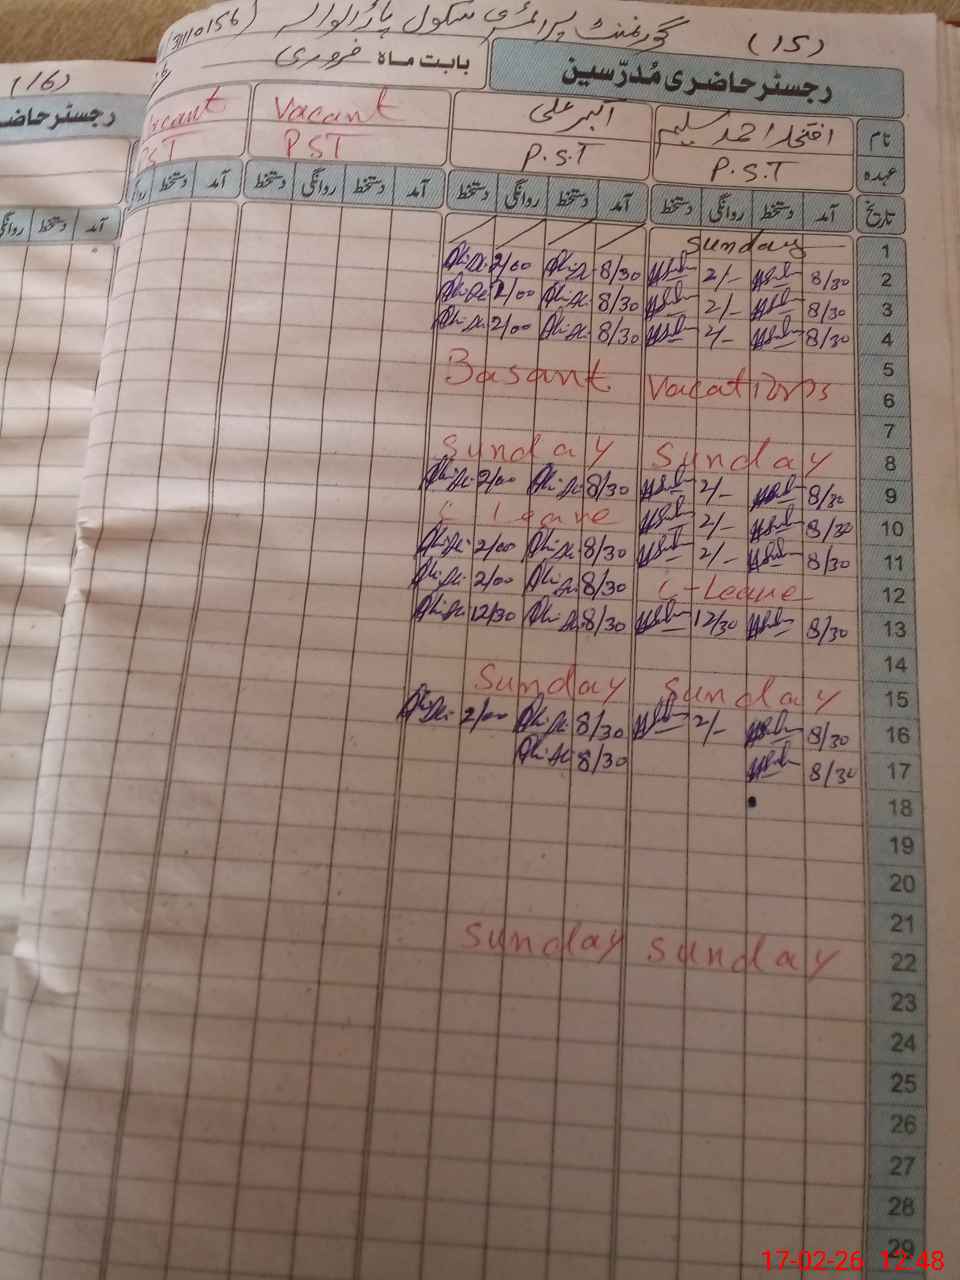 (15) گورنمنٹ پرائمری سکول 31110156)
رجسٹر حاضری مُدرّسین بابت ماہ فروری
نام افتخار احمد سلیم اکبر علی Vacant Vacant
عہدہ P.S.T P.S.T PST PST
تاریخ آمد دستخط روانگی دستخط آمد دستخط روانگی دستخط آمد دستخط روانگی دستخط آمد
1 Sunday
2 8/30 2/- 8/30 2/00
3 8/30 2/- 8/30 2/00
4 8/30 2/- 8/30 2/00
5
Basant Vacations
6
7
8 Sunday Sunday
9 8/30 2/- 8/30 2/00
10 8/30 2/- C Leave
11 8/30 2/- 8/30 2/00
12 C-Leave 8/30 2/00
13 8/30 12/30 8/30 12/30
14
15 Sunday Sunday
16 8/30 2/- 8/30 2/00
17 8/30 8/30
18
19
20
21
22 Sunday Sunday
23
24
25
26
27
28
29
(16)
رجسٹر حاضر
آمد دستخط روانگی
17-02-26 12:48